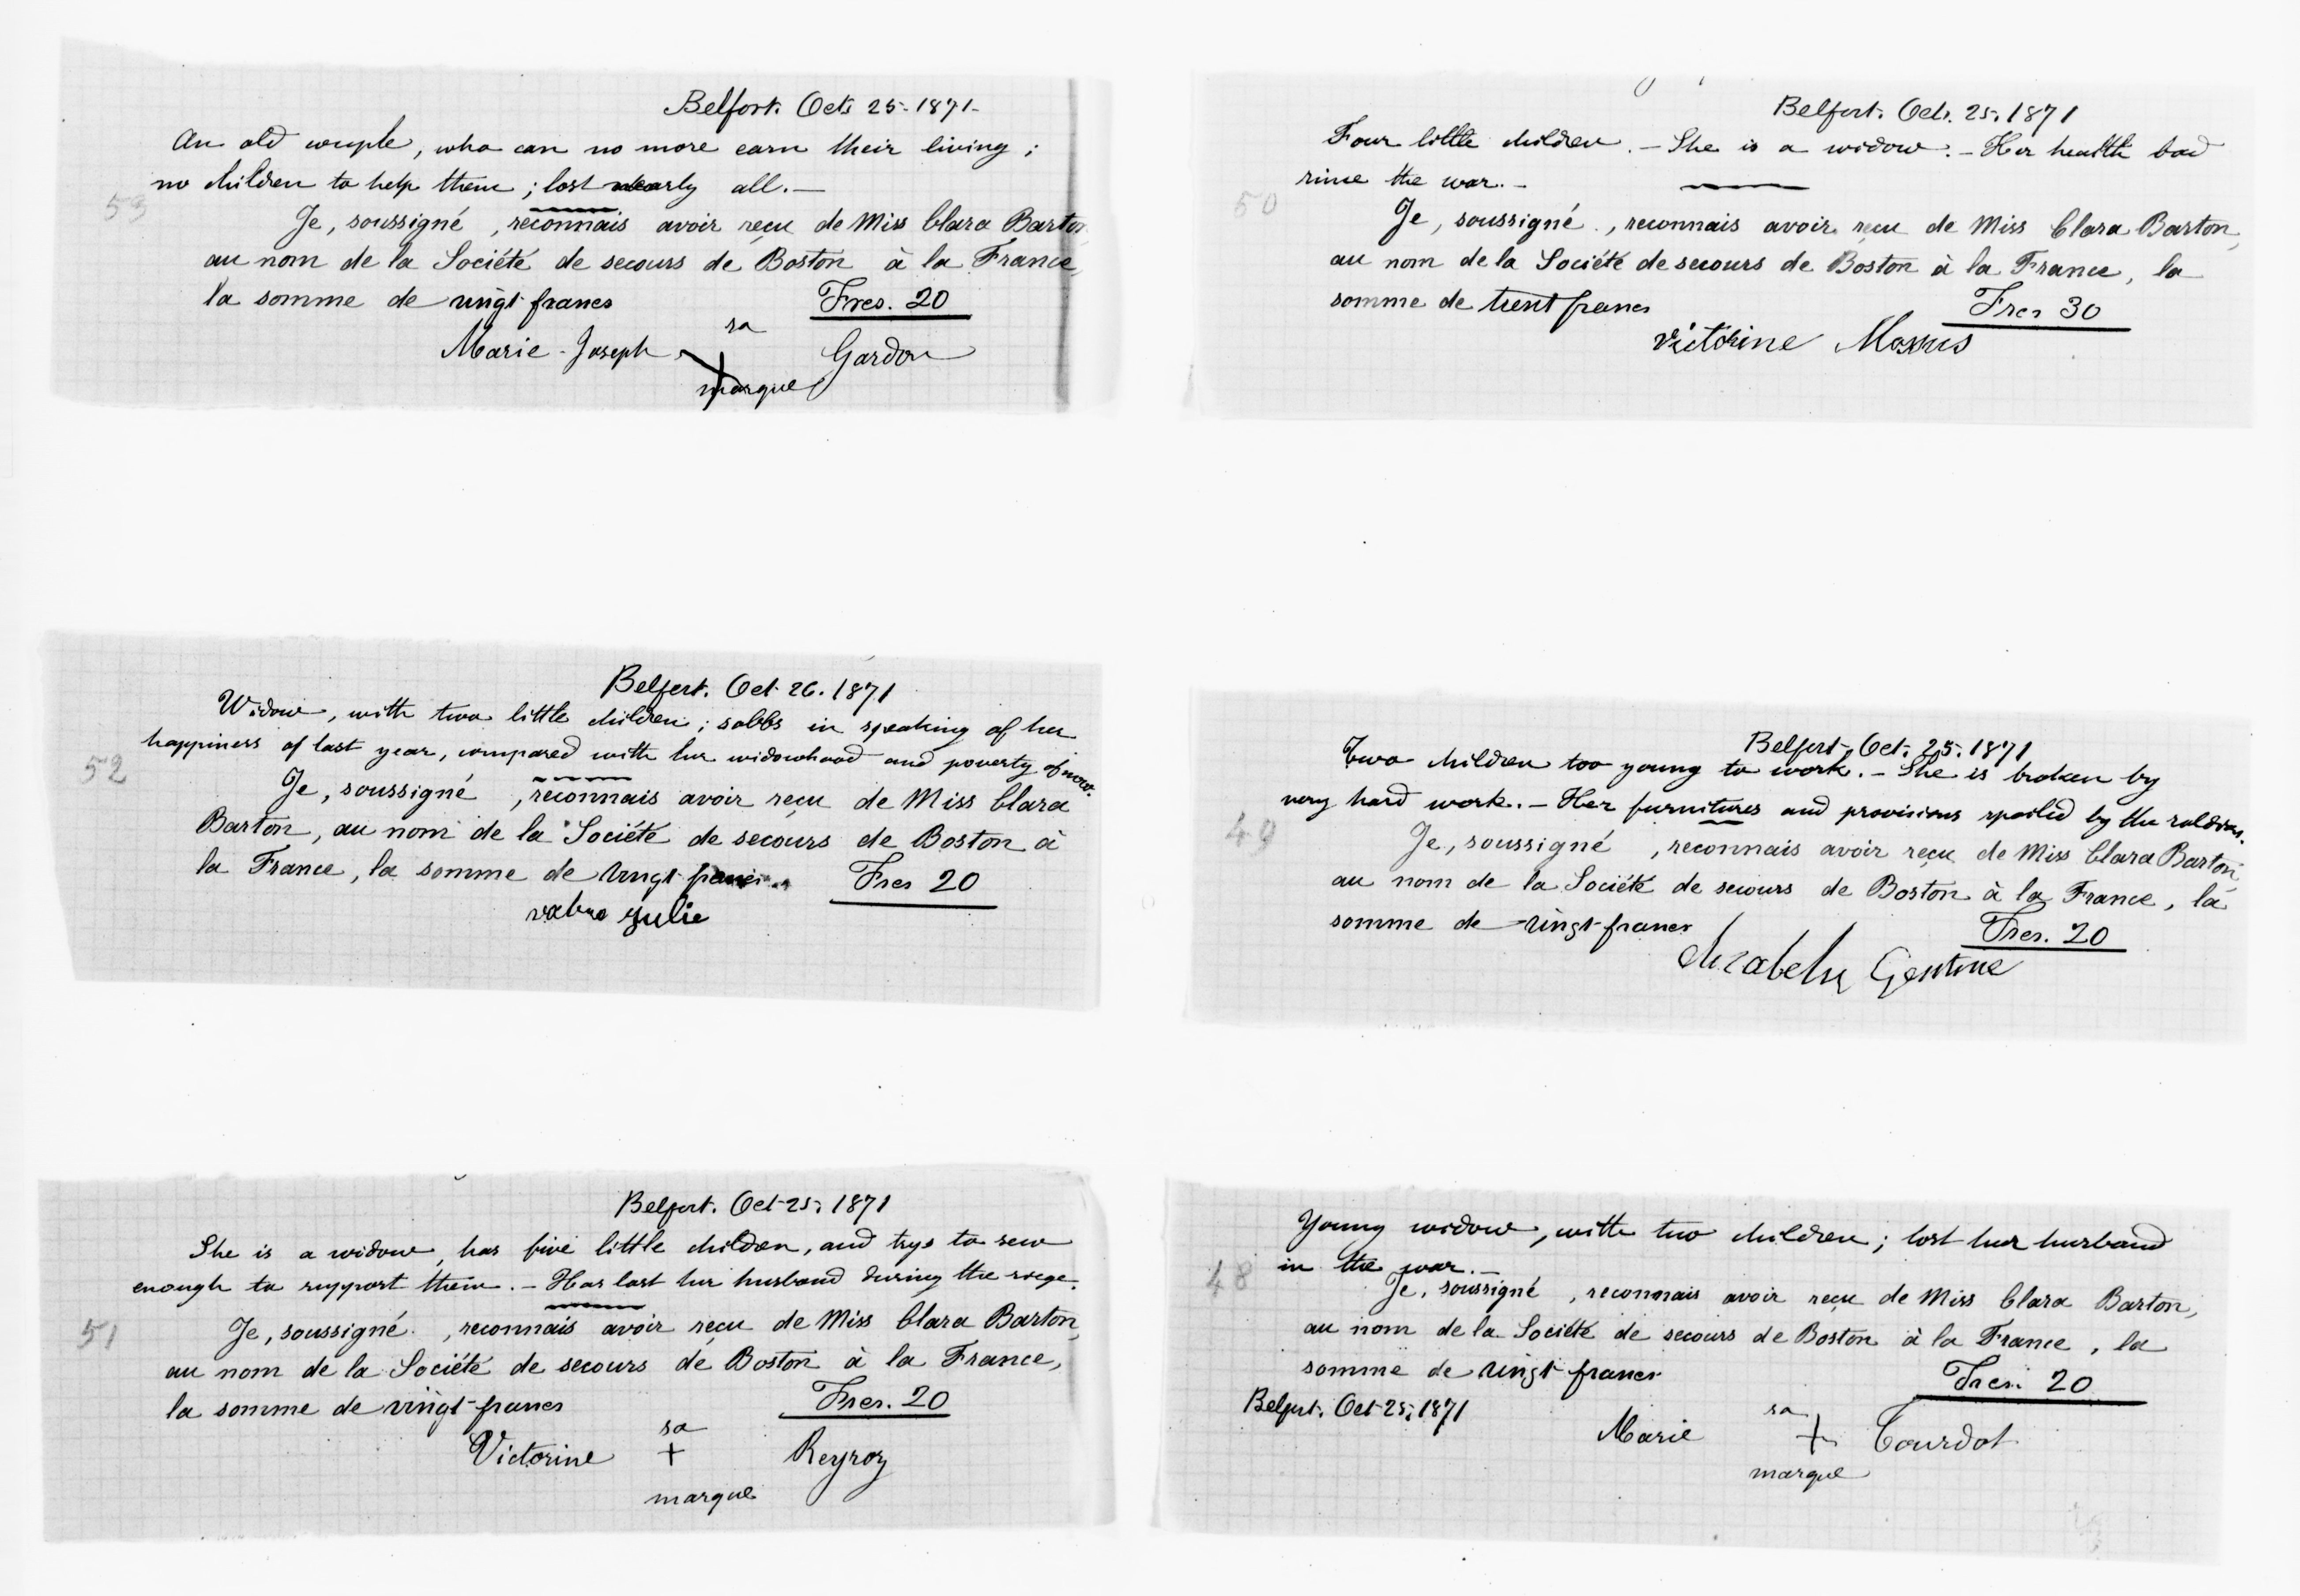 Belfort. Oct. 25. 1871.
An old couple, who can no more earn their living;
no children to help them; lost nearly all. —
53
Je, soussigné , reconnais avoir reçu de Miss Clara Barton
au nom de la Société de secours de Boston à la France,
la somme de vingt francs Frcs. 20
sa
Marie-Joseph Gardon
marque
Belfort. Oct. 26. 1871
Widow, with two little children; sobbs in speaking of her
happiness of last year, compared with her widowhood and poverty of now.
52
Je, soussigné , reconnais avoir reçu de Miss Clara
Barton, au nom de la Société de secours de Boston à
la France, la somme de vingt francs Frcs 20
Julie
Belfort. Oct. 25. 1871
She is a widow, has five little children, and trys to sew
enough to support them. — Has lost her husband during the siege.
51
Je, soussigné , reconnais avoir reçu de Miss Clara Barton,
au nom de la Société de secours de Boston à la France,
la somme de vingt francs Frcs. 20
sa
Victorine + Reyroy
marque
Belfort. Oct. 25. 1871
Four little children. — She is a widow. — Her health bad
since the war. —
50
Je, soussigné , reconnais avoir reçu de Miss Clara Barton,
au nom de la Société de secours de Boston à la France, la
somme de trent francs Frcs 30
Victorine
Belfort. Oct. 25. 1871
Two children too young to work. — She is broken by
very hard work. — Her furnitures and provisions spoiled by the soldiers.
49
Je, soussigné , reconnais avoir reçu de Miss Clara Barton,
au nom de la Société de secours de Boston à la France, la
somme de vingt francs Frcs. 20
Young widow, with two children; lost her husband
in the war. —
48
Je, soussigné , reconnais avoir reçu de Miss Clara Barton,
au nom de la Société de secours de Boston à la France, la
somme de vingt francs Frcs. 20
Belfort. Oct. 25. 1871
sa
Marie + Tourdot
marque